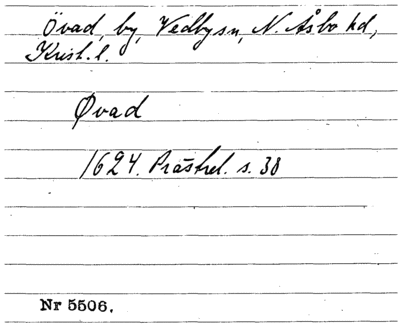 Övad, by, Vedbysn, N. Åsbo hd,
Krist. l.
Øvad
1624. Prästrel. s. 38
Nr 5506.